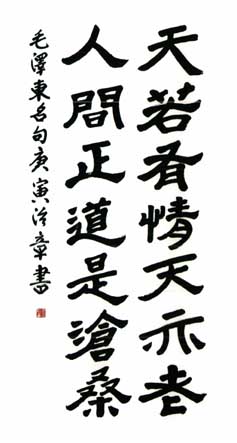 天若有情天亦老
人間正道是滄桑
毛澤東名句庚寅治章書